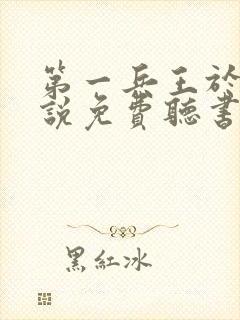 第一兵王於
說免費聽書
黑紅冰